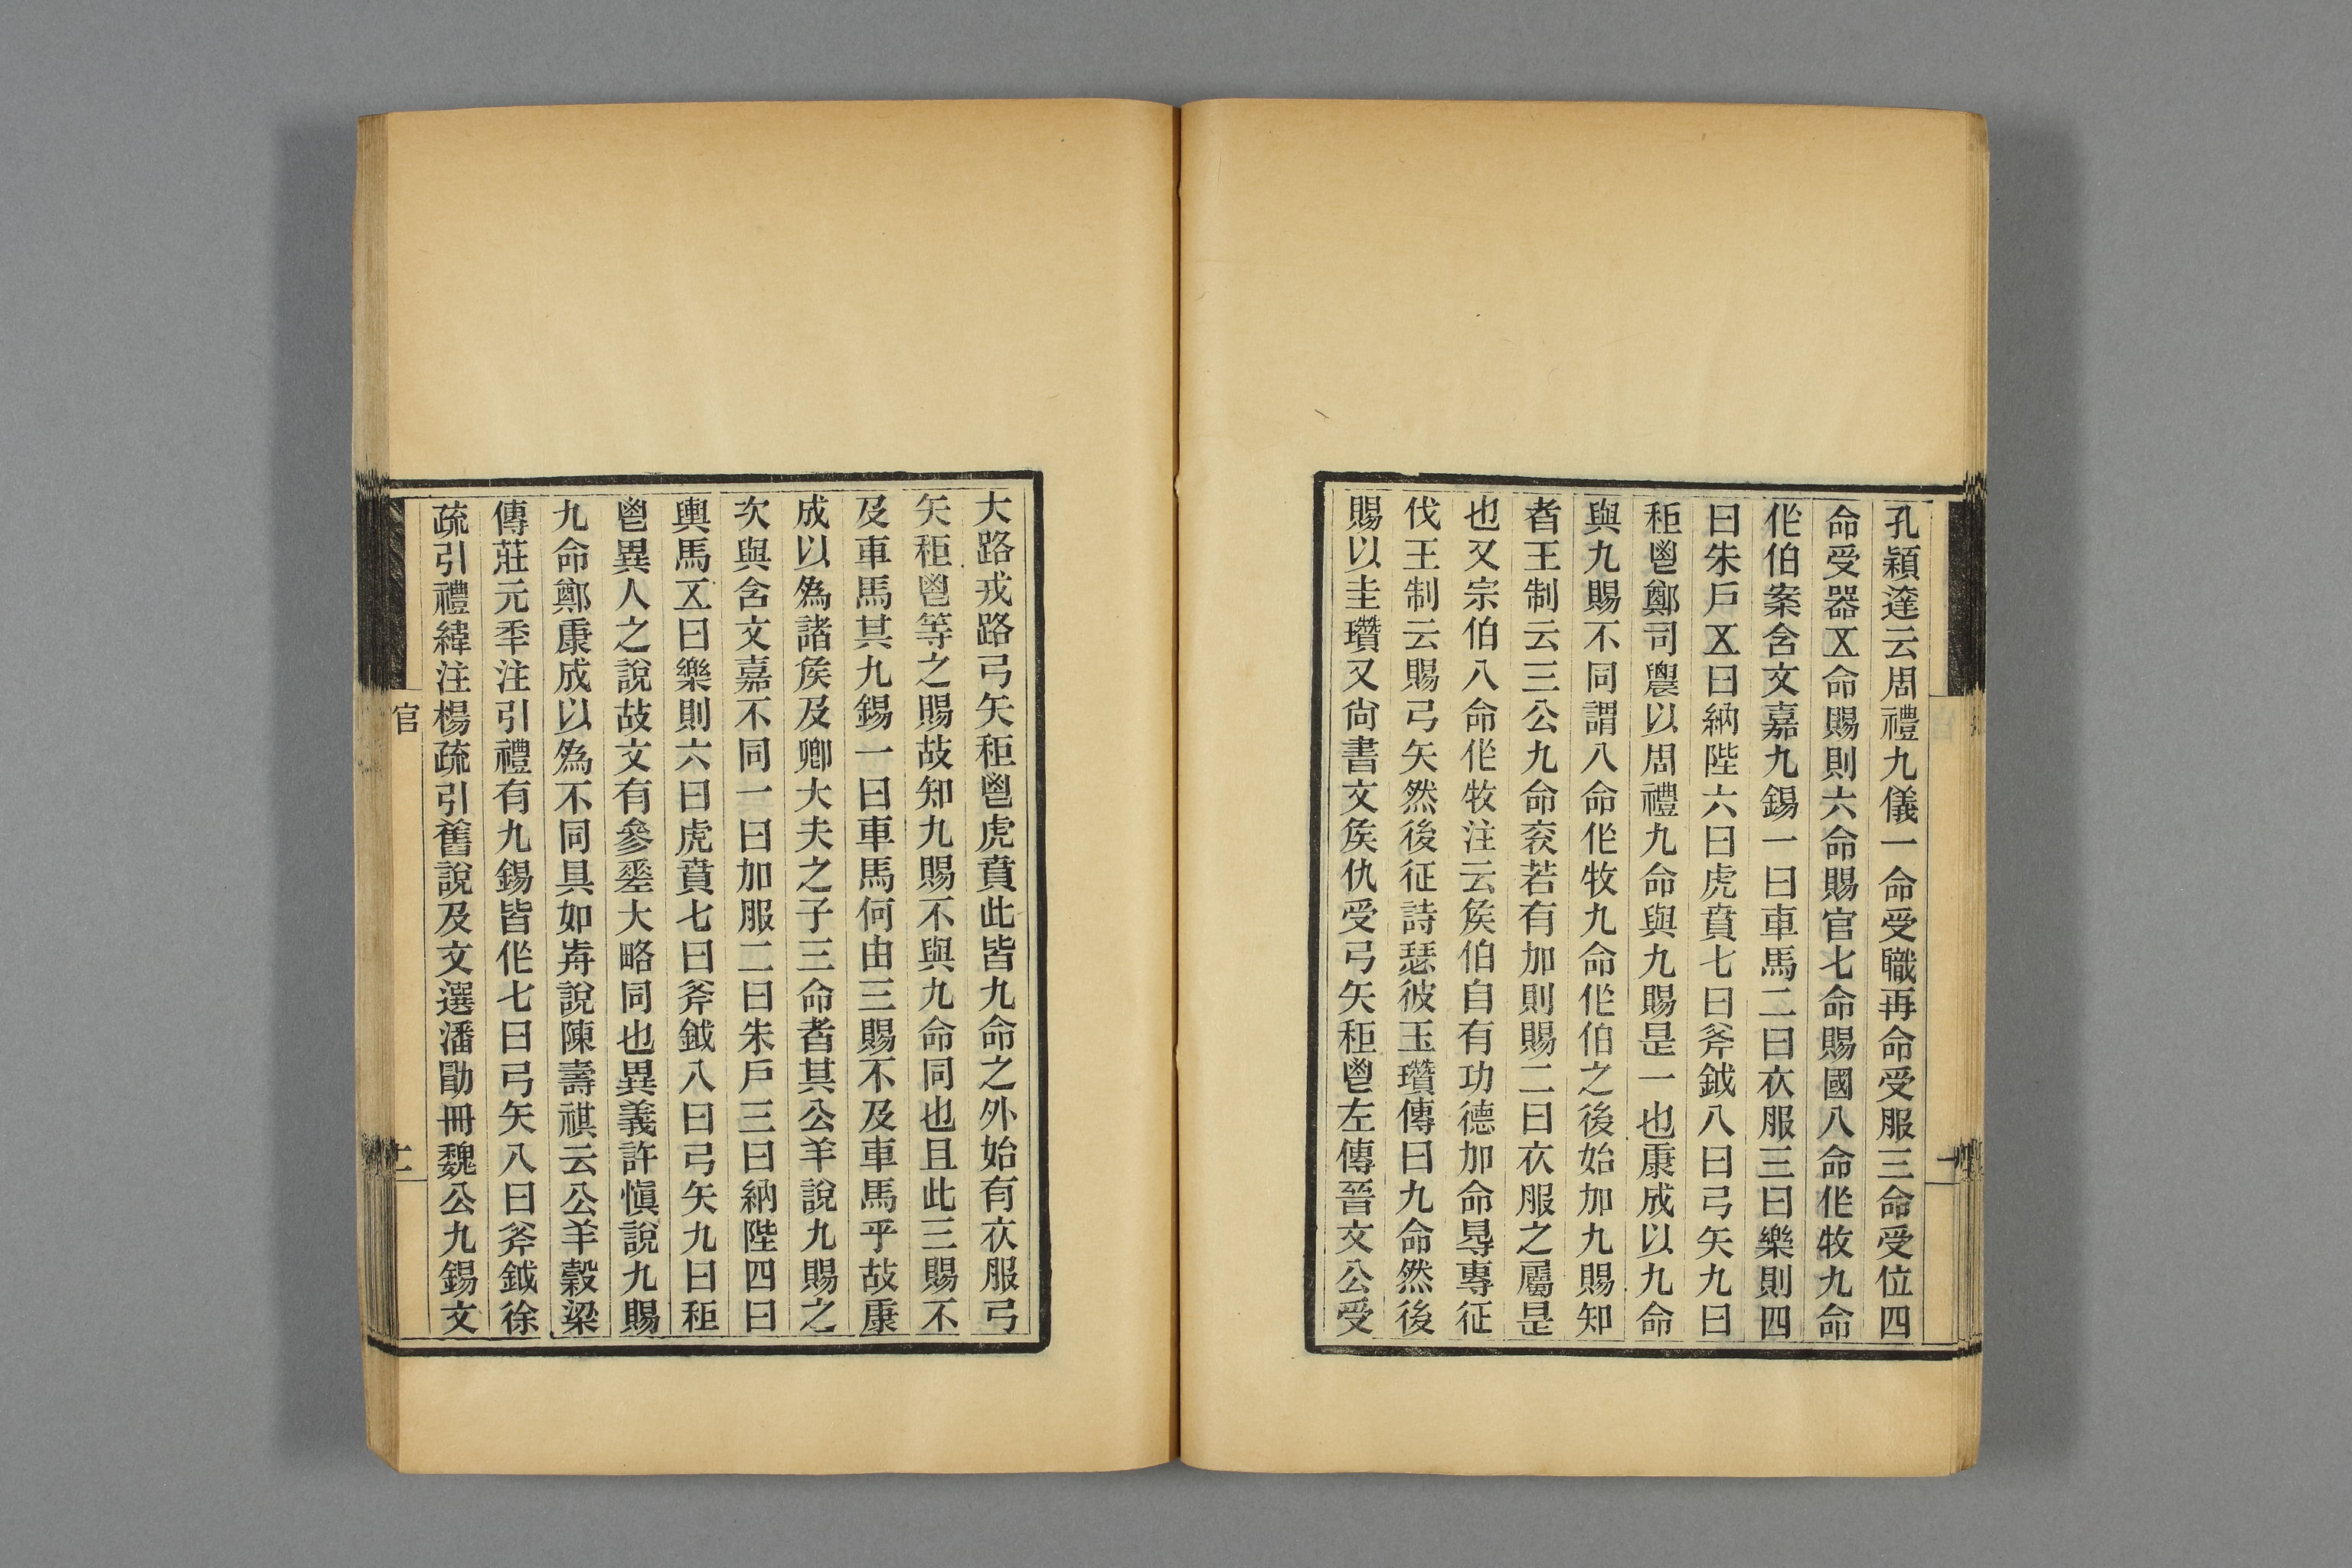 孔穎達云周禮九儀一命受職再命受服三命受位四
命受器㐅命賜則六命賜官七命賜國八命作牧九命
作伯案含文嘉九錫一曰車馬二曰衣服三曰樂則四
曰朱戶㐅曰納陛六曰虎賁七曰斧鉞八曰弓矢九曰
秬鬯鄭司農以周禮九命與九賜是一也康成以九命
與九賜不同謂八命作牧九命作伯之後始加九賜知
者王制云三公九命袞若有加則賜二曰衣服之屬是
也又宗伯八命作牧注云矦伯自有功德加命㝵專征
伐王制云賜弓矢然後征詩瑟彼玉瓚傳曰九命然後
賜以圭瓚又尙書文矦仇受弓矢秬鬯左傳晉文公受
大路戎路弓矢秬鬯虎賁此皆九命之外始有衣服弓
矢秬鬯等之賜故知九賜不與九命同也且此三賜不
及車馬其九錫一曰車馬何由三賜不及車馬乎故康
成以為諸矦及卿大夫之子三命者其公羊說九賜之
次與含文嘉不同一曰加服二曰朱戶三曰納陛四曰
輿馬㐅曰樂則六曰虎賁七曰斧鉞八曰弓矢九曰秬
鬯異人之說故文有參差大略同也異義許愼說九賜
九命鄭康成以為不同具如歬說陳壽祺云公羊穀梁
傳莊元秊注引禮有九錫皆作七曰弓矢八曰斧鉞徐
疏引禮緯注楊疏引舊說及文選潘勖冊魏公九錫文
官
二
一